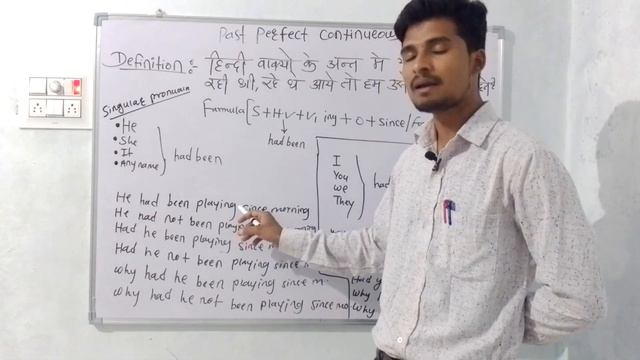 Past Perfect Continuous
Definition :- हिन्दी वाक्यो के अन्त मे
रही थी, रहे थे आये तो हम
Formula [S + H.V + V₁ ing + O + since/for
had been
Singular pronoun
• He
• She
• It
• Any name
had been
I
You
We
They
had
He had been playing since morning
He had not been playing
Had he been playing since
Had he not been playing since
why had he been playing since m
why had he not been playing since mo
Had
Why
Why